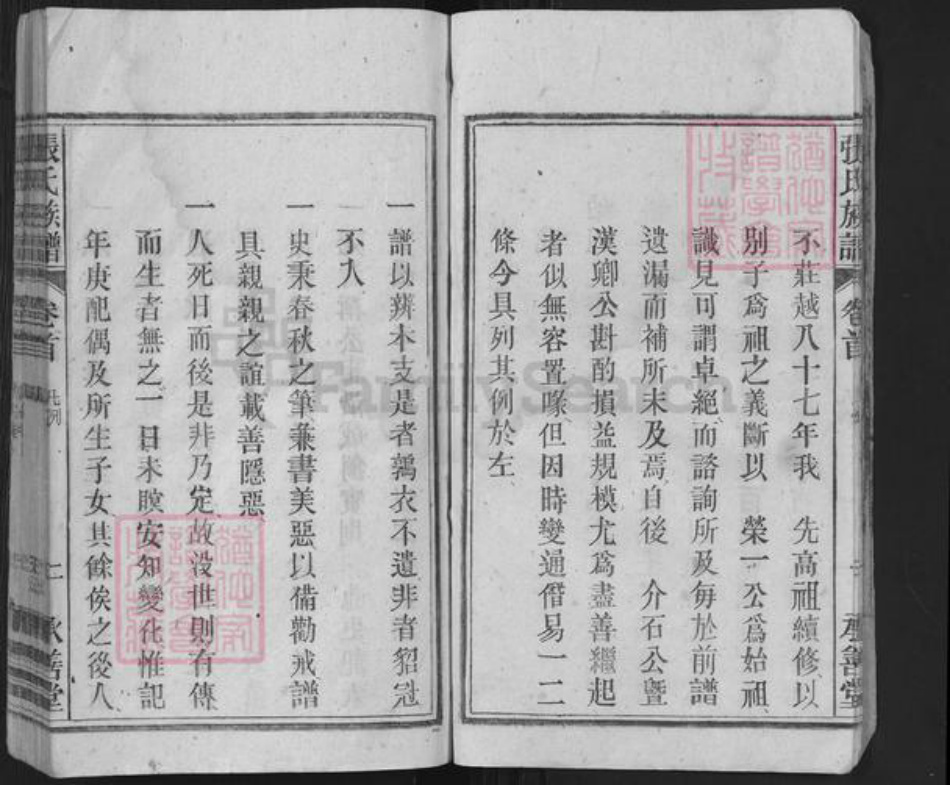 張氏族譜 卷首 承善堂
不莊越八十七年我 先高祖續修以
別子爲祖之義斷以 榮一公爲始祖
識見可謂卓絕而諮詢所及每於前譜
遺漏而補所未及焉自後 介石公暨
漢卿公斟酌損益規模尤爲盡善繼起
者似無容置喙但因時變通僭易一二
條今具列其例於左
一譜以辨本支是者鶉衣不遺非者貂冠
不入
一史秉春秋之筆兼書美惡以備勸戒譜
具親親之誼載善隱惡
一人死日而後是非乃定故沒世則有傳
而生者無之一日未瞑安知變化惟記
年庚配偶及所生子女其餘俟之後人
張氏族譜 卷首 凡例 二 承善堂
FamilySearch